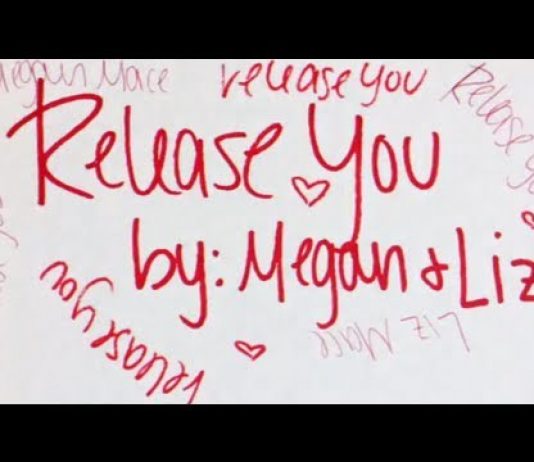 Megan Mace
release you
Release You
Release You
by: Megan & Liz
release you
Liz Mace